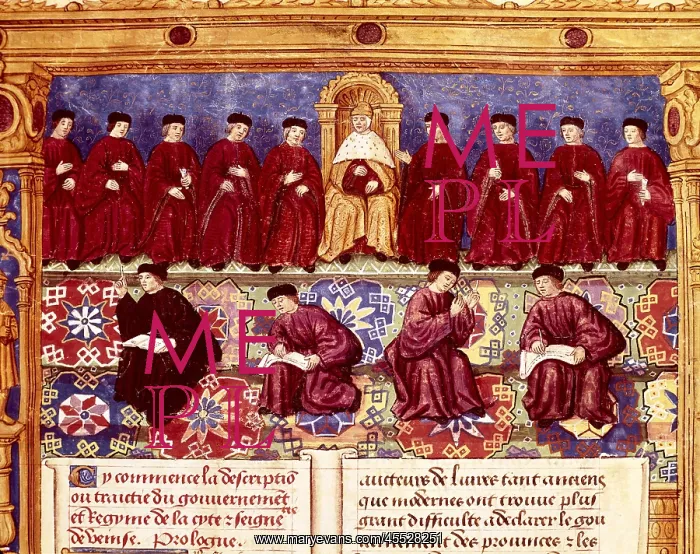 ME
PL
ME
PL
Cy commence la descriptiō
ou traictie du gouuernemēt
et Regyme de la cyte ⁊ seigneurie
de venise. Prologue.
aucteurs de liures tant anciens
que modernes ont trouue plus
grant difficulte a declarer le gou
uernement des prouinces ⁊ les
www.maryevans.com/45528251